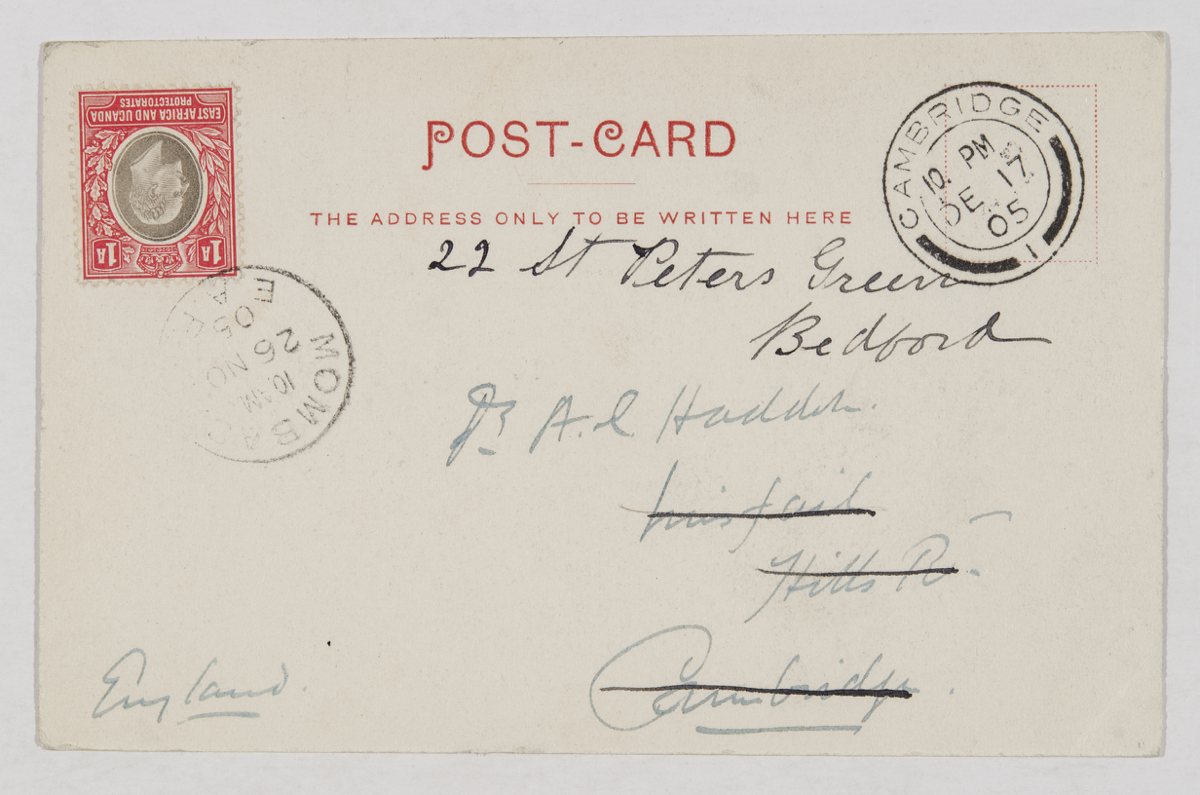 EAST AFRICA AND UGANDA
PROTECTORATES
1A 1A
POST-CARD
THE ADDRESS ONLY TO BE WRITTEN HERE
CAMBRIDGE
10. PM
DE 17
05
1
MOMBA
10 AM
26 NO
05
E A P
22 St Peters Green
Bedford
Dr A. C. Haddon.
Innisfail
Hills Rd.
Cambridge.
England.